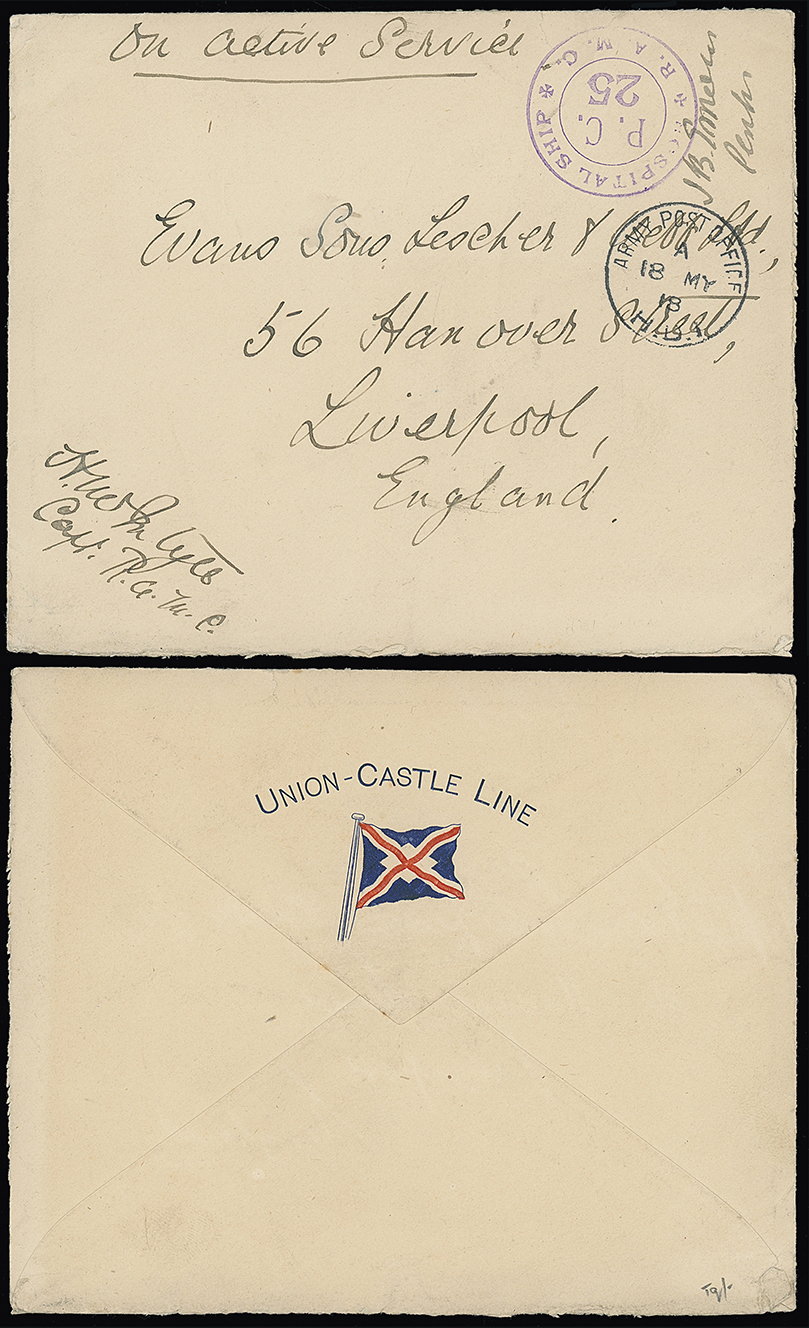 On Active Service
HOSPITAL SHIP ✠ R.A.M.C. ✠
P.C.
25
Evans Sons, Lescher & Webb Ltd.,
ARMY POST OFFICE
A
18 MY
18
H.B.1
56 Hanover Street,
Liverpool,
England.
Capt. R.A.M.C.
UNION-CASTLE LINE